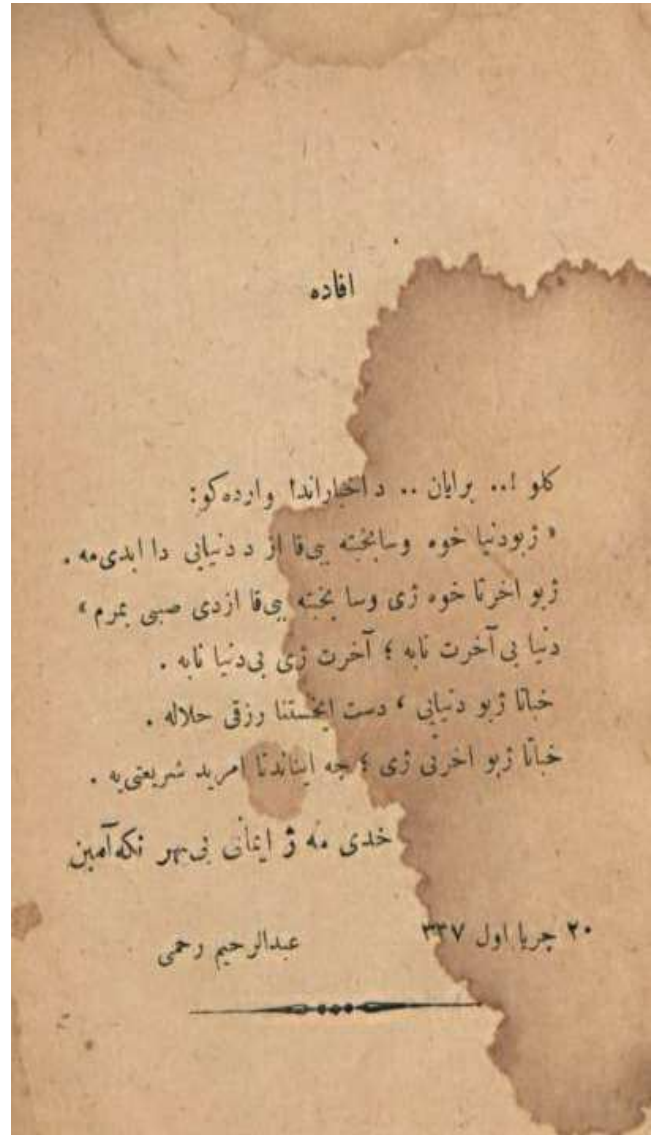 افاده
كلو !.. برايان .. د اخباراندا وارده كو:
« ژبودنيا خوه وسابخبته بى‌قا از د دنيايى دا ابدى‌مه .
ژبو اخرتا خوه ژى وسا بخبته بى‌قا ازدى صبى بمرم »
دنيا بى آخرت نابه ؛ آخرت ژى بى‌دنيا نابه .
خباتا ژبو دنيايى ، دست ايخستنا رزقى حلاله .
خباتا ژبو اخرتى ژى ؛ جه اينانذنا امريد شريعتى‌يه .
خدى مه ژ ايمانى بى‌بهر نكه آمين
٢٠ چريا اول ٣٣٧
عبدالرحيم رحمى